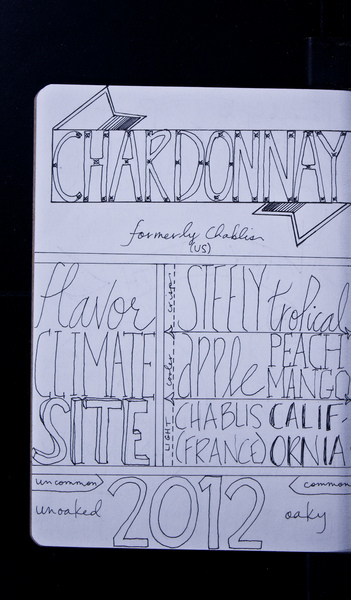 CHARDONNAY
formerly Chablis
(US)
flavor
CLIMATE
SITE
crisp
cooler
LIGHT
STEELY tropical
apple PEACH
MANGO
CHABLIS CALIF-
(FRANCE) ORNIA
uncommon 2012 common
unoaked oaky